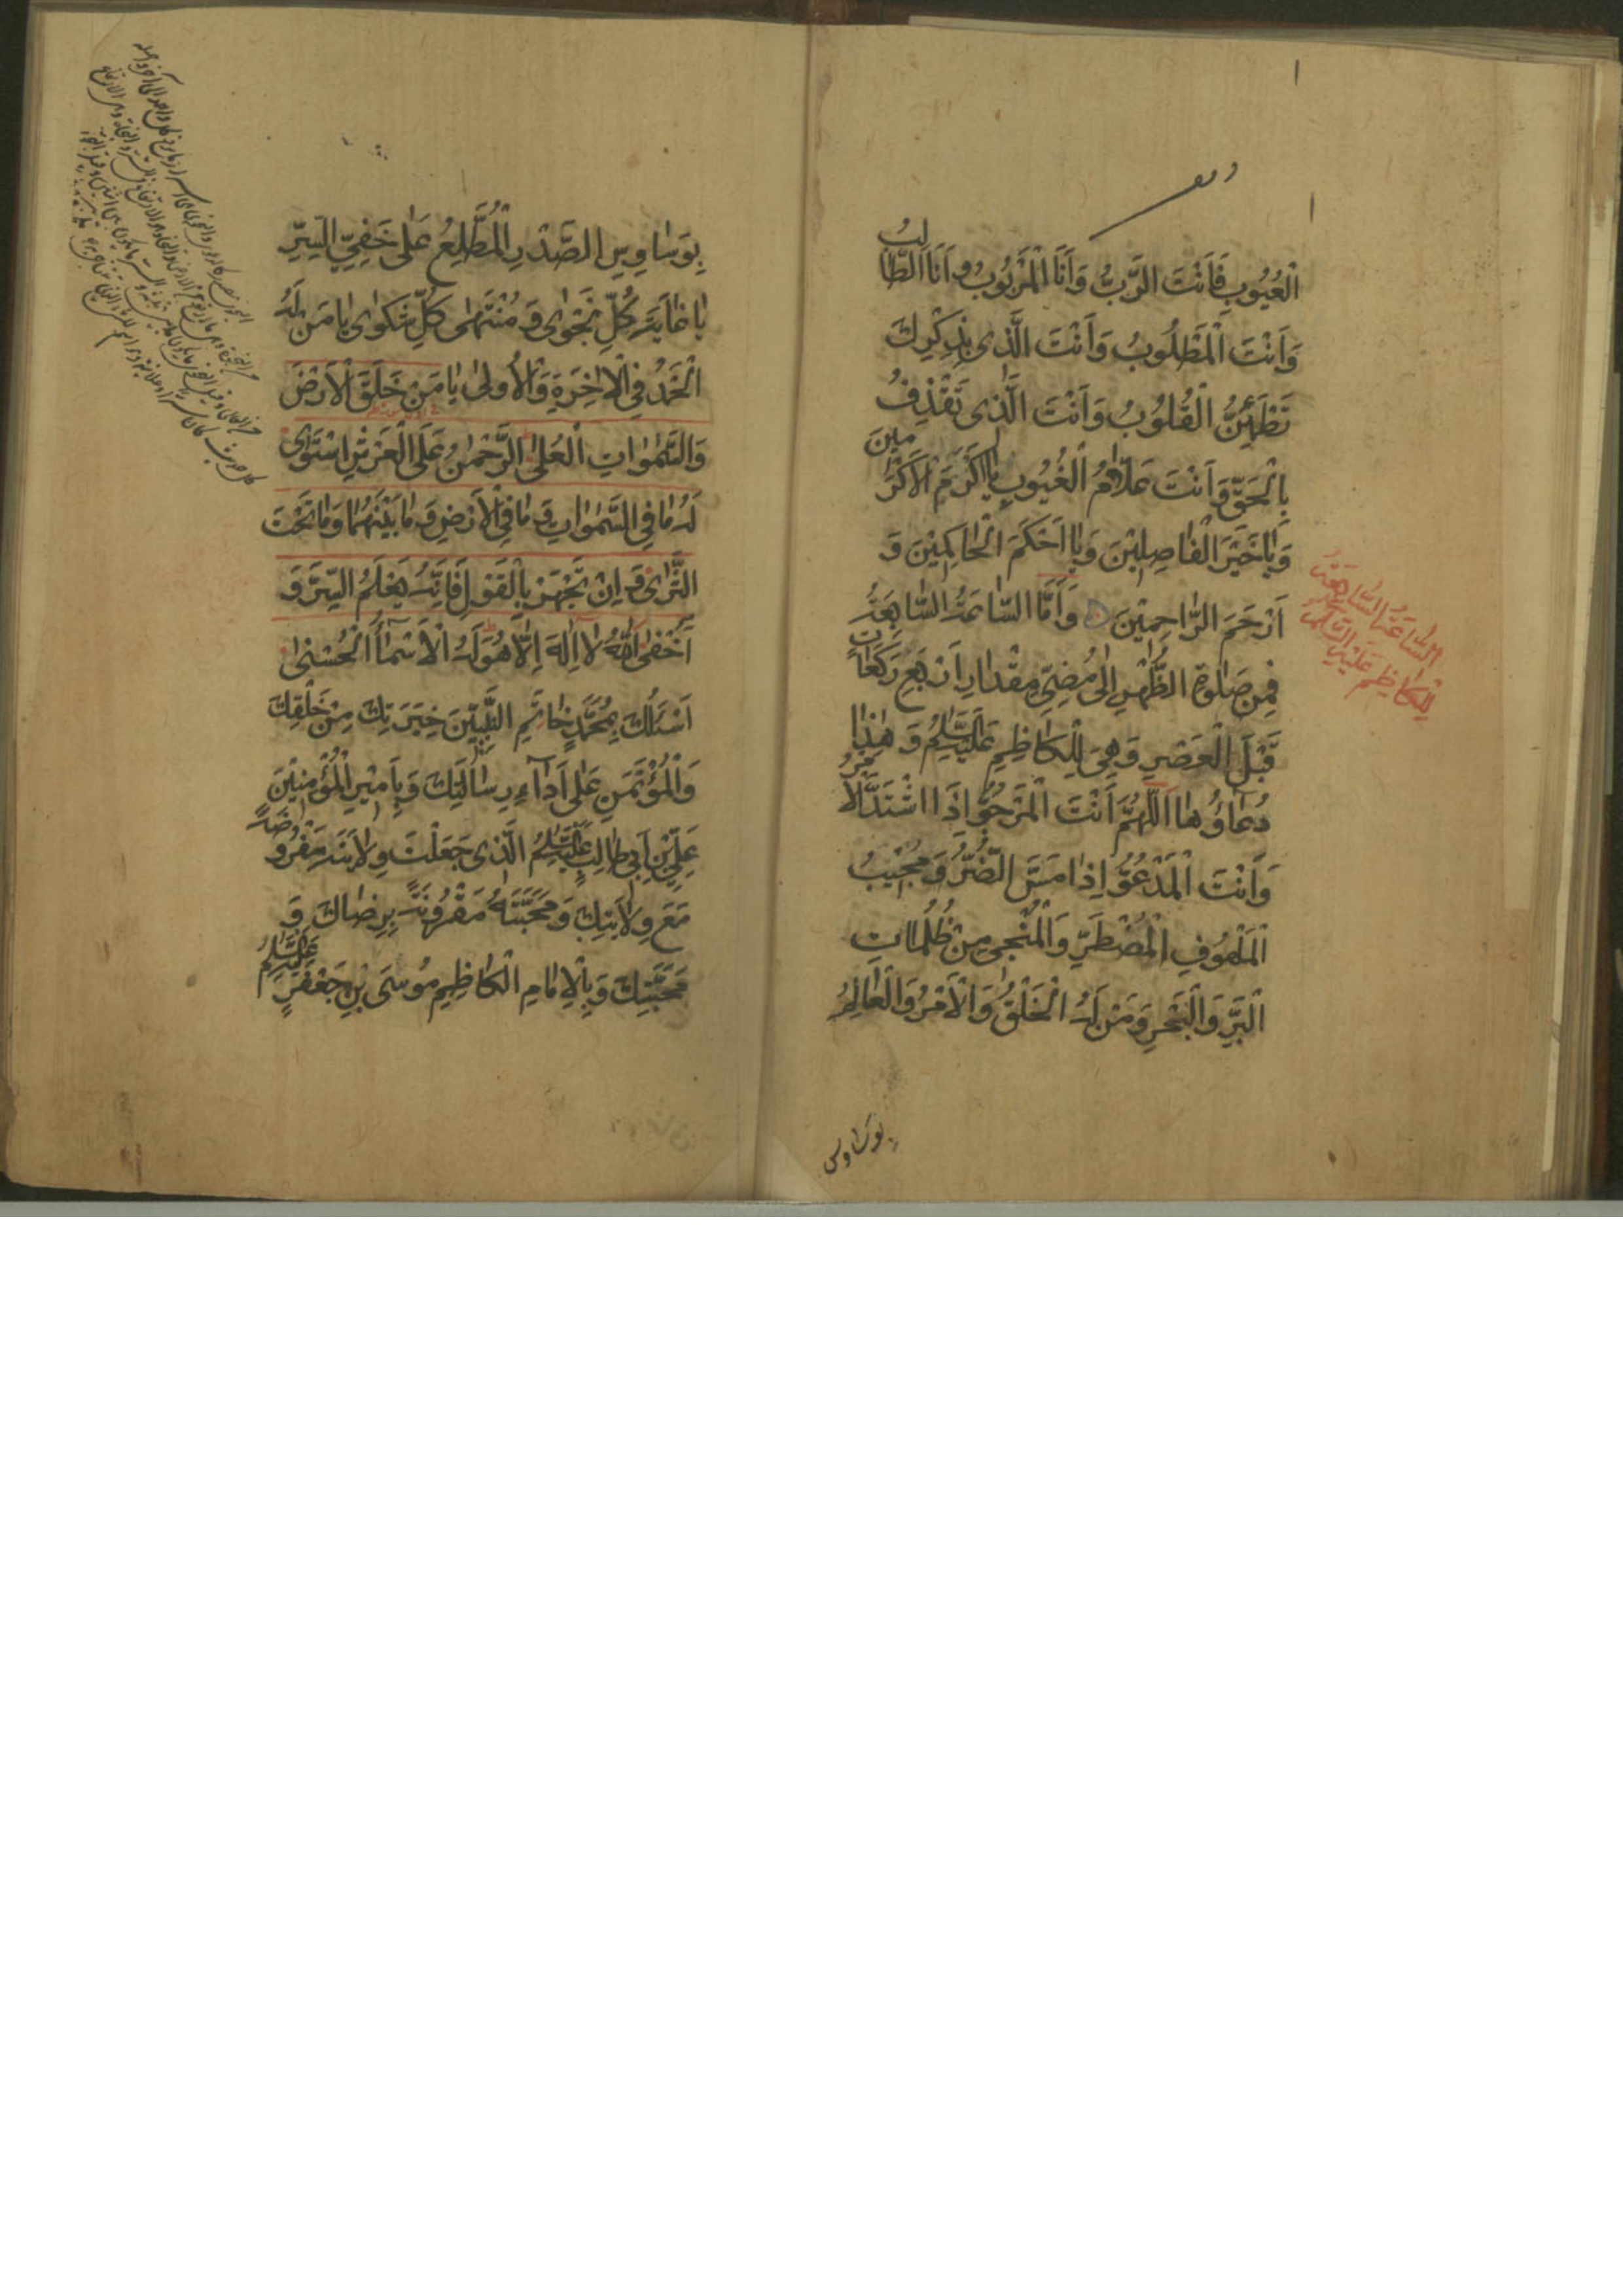 الْعُيُوبِ فَاَنْتَ الرَّبُّ وَاَنَا الْمَرْبُوبُ وَاَنَا الطَّالِبُ
وَاَنْتَ الْمَطْلُوبُ وَاَنْتَ الَّذِى بِذِكْرِكَ
تَطْمَئِنُّ الْقُلُوبُ وَاَنْتَ الَّذِى تَقْذِفُ
بِالْحَقِّ وَاَنْتَ عَلَّامُ الْغُيُوبِ يَا اَكْرَمَ الْاَكْرَمِينَ
وَيَا خَيْرَ الْفَاصِلِيْنَ وَيَا اَحْكَمَ الْحَاكِمِيْنَ وَ
اَرْحَمَ الرَّاحِمِيْنَ وَاَمَّا السَّاعَةُ السَّابِعَةُ
فَمِنْ صَلٰوةِ الظُّهْرِ اِلٰى مُضِىِّ مِقْدَارِ اَرْبَعِ رَكَعَاتٍ
قَبْلَ الْعَصْرِ وَهِىَ لِلْكَاظِمِ عَلَيْهِ السَّلَامُ وَهٰذَا
دُعَاؤُهَا اَللّٰهُمَّ اَنْتَ الْمَرْجُوُّ اِذَا اشْتَدَّ الْاَمْرُ
وَاَنْتَ الْمَدْعُوُّ اِذَا مَسَّ الضُّرُّ وَمُجِيْبُ
الْمَلْهُوفِ الْمُضْطَرِّ وَالْمُنْجِى مِنْ ظُلُمَاتِ
الْبَرِّ وَالْبَحْرِ وَمَنْ لَهُ الْخَلْقُ وَالْاَمْرُ وَالْعَالِمُ
بوساوس
السَّاعَةُ السَّابِعَةُ
لِلْكَاظِمِ عَلَيْهِ السَّلَامُ
بِوَسَاوِسِ الصَّدْرِ الْمُطَّلِعُ عَلٰى خَفِىِّ السِّرِّ
يَا غَايَةَ كُلِّ نَجْوٰى وَ مُنْتَهٰى كُلِّ شَكْوٰى يَا مَنْ لَهُ
الْحَمْدُ فِى الْاٰخِرَةِ وَالْاُولٰى يَا مَنْ خَلَقَ الْاَرْضَ
وَالسَّمٰوَاتِ الْعُلٰى الرَّحْمٰنُ عَلَى الْعَرْشِ اسْتَوٰى
لَهُ مَا فِى السَّمٰوَاتِ وَ مَا فِى الْاَرْضِ وَ مَا بَيْنَهُمَا وَمَا تَحْتَ
الثَّرٰى وَ اِنْ تَجْهَرْ بِالْقَوْلِ فَاِنَّهُ يَعْلَمُ السِّرَّ وَ
اَخْفٰى اَللّٰهُ لَا اِلٰهَ اِلَّا هُوَ لَهُ الْاَسْمَاءُ الْحُسْنٰى
اَسْئَلُكَ بِمُحَمَّدٍ خَاتَمِ النَّبِيِّيْنَ خِيَرَتِكَ مِنْ خَلْقِكَ
وَالْمُؤْتَمَنِ عَلٰى اَدَاءِ رِسَالَتِكَ وَبِاَمِيْرِ الْمُؤْمِنِيْنَ
عَلِىِّ بْنِ اَبِى طَالِبٍ عَلَيْهِ السَّلَامُ الَّذِى جَعَلْتَ وِلَايَتَهُ مَفْرُوضَةً
مَعَ وِلَايَتِكَ وَمَحَبَّتَهُ مَقْرُونَةً بِرِضَاكَ وَ
مَحَبَّتِكَ وَبِالْاِمَامِ الْكَاظِمِ مُوسَى بْنِ جَعْفَرٍ عَلَيْهِ السَّلَامُ